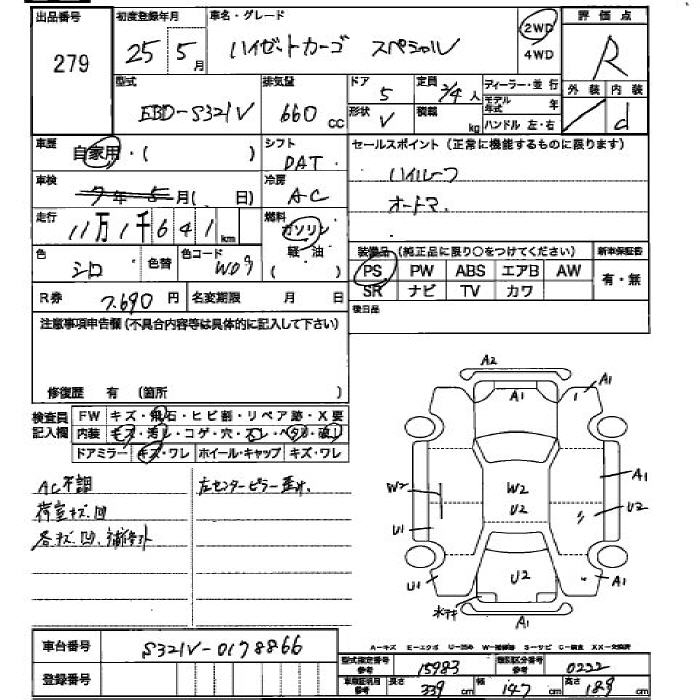 出品番号 初度登録年月 車名・グレード 評価点
279 25年5月 ハイゼットカーゴ スペシャル 2WD 4WD R
型式 排気量 ドア 定員 ディーラー・並行 外装 内装
EBD-S321V 660cc 5 2/4人 モデル年式 年 d
形状 V 積載 kg ハンドル 左・右
車歴 自家用・( ) シフト DAT セールスポイント(正常に機能するものに限ります)
車検 7年5月( 日) 冷房 AC ハイルーフ
オートマ
走行 11万1千641km 燃料 ガソリン 軽油 ( )
色 シロ 色替 色コード W09
装備品(純正品に限り○をつけてください) 新車保証書
PS PW ABS エアB AW 有・無
SR ナビ TV カワ
R券 7,690円 名変期限 月 日 後日品
注意事項申告欄(不具合内容等は具体的に記入して下さい)
修復歴 有(箇所 )
検査員記入欄 FW キズ・飛石・ヒビ割・リペア跡・X要
内装 キズ・汚れ・コゲ・穴・スレ・ヘタリ・破れ
ドアミラー キズ・ワレ ホイール・キャップ キズ・ワレ
AC不調 左センターピラー歪み.
荷室キズ凹
各キズ.凹.
A2
A1 A1
W2 W2 U2 A1
U1 U2
U1 U2 A1
A1
A-キズ E-エクボ U-凹み W-補修跡 S-サビ C-腐食 XX-交換済
車台番号 S321V-0178866
型式指定番号 参考 15983 類別区分番号 参考 0222
登録番号 車検証明用 参考 長さ 339cm 幅 147cm 高さ 189cm